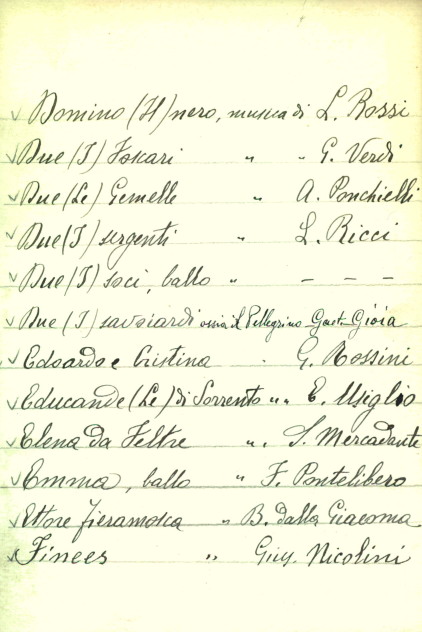 Domino (Il) nero, musica di L. Rossi
Due (I) Foscari " " G. Verdi
Due (Le) Gemelle " A. Ponchielli
Due (I) sergenti " L. Ricci
Due (I) soci, ballo " - - -
Due (I) savoiardi ossia il Pellegrino Gaet. Gioia
Edoardo e Cristina " G. Rossini
Educande (Le) di Sorrento " " E. Usiglio
Elena da Feltre " " S. Mercadante
Emma, ballo " F. Pontelibero
Ettore fieramosca " B. dalla Giacoma
Finees " Gius. Nicolini